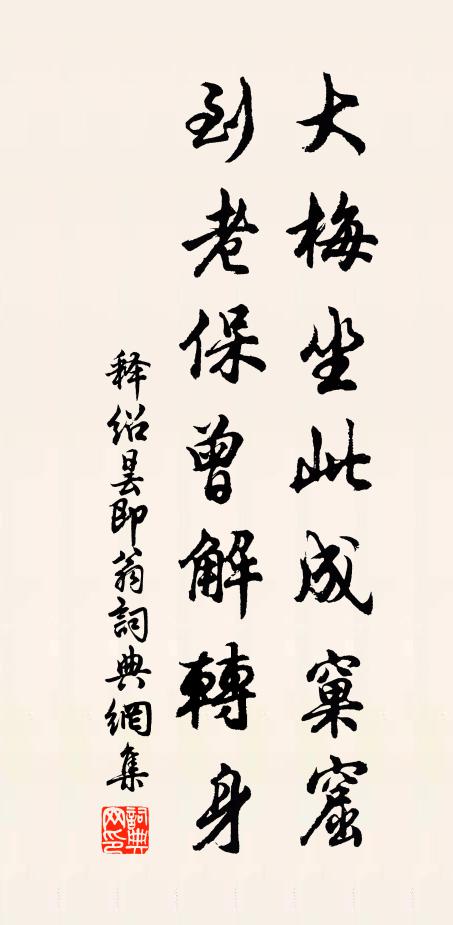 大梅坐此成窠窟
到老保曾解轉身
释绍昙即翁詞典網集
詞典網印